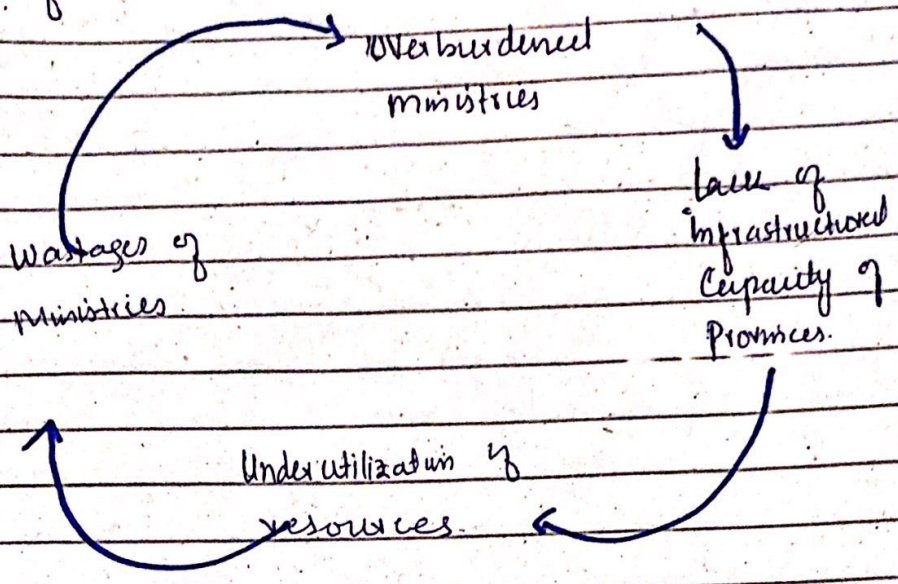 Overburdened
ministries
Lack of
infrastructural
Capacity of
Provinces.
Underutilization of
resources.
Wastages of
Ministries